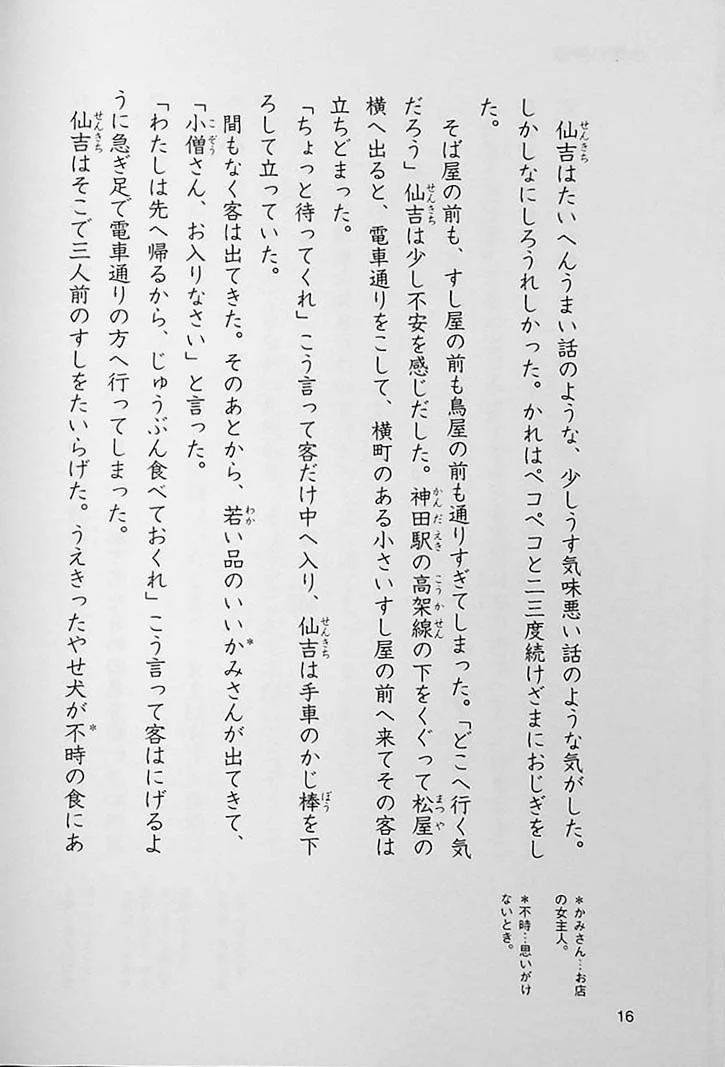 仙吉はたいへんうまい話のような、少しうす気味悪い話のような気がした。
しかしなにしろうれしかった。かれはペコペコと二三度続けざまにおじぎをし
た。
そば屋の前も、すし屋の前も鳥屋の前も通りすぎてしまった。「どこへ行く気
だろう」仙吉は少し不安を感じだした。神田駅の高架線の下をくぐって松屋の
横へ出ると、電車通りをこして、横町のある小さいすし屋の前へ来てその客は
立ちどまった。
「ちょっと待ってくれ」こう言って客だけ中へ入り、仙吉は手車のかじ棒を下
ろして立っていた。
間もなく客は出てきた。そのあとから、若い品のいいかみさんが出てきて、
「小僧さん、お入りなさい」と言った。
「わたしは先へ帰るから、じゅうぶん食べておくれ」こう言って客はにげるよ
うに急ぎ足で電車通りの方へ行ってしまった。
仙吉はそこで三人前のすしをたいらげた。うえきったやせ犬が不時の食にあ
*かみさん…お店
の女主人。
*不時…思いがけ
ないとき。
16